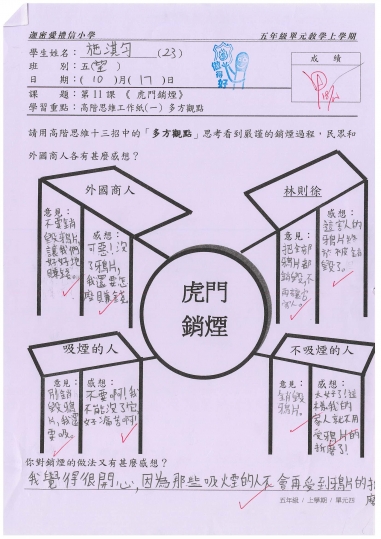 迦密愛禮信小學
五年級單元教學上學期
學生姓名：施淇勻(23)
成績
班別：五(望)
日期：(10)月(17)日
做得好
課題：第11課《虎門銷煙》
學習重點：高階思維工作紙(一) 多方觀點
請用高階思維十三招中的「多方觀點」思考看到嚴謹的銷煙過程，民眾和
外國商人各有甚麼感想？
外國商人
意見：
不要銷
毀鴉片，
讓我們
好好地
賺錢。
感想：
可惡！沒
了鴉片，
我還要怎
麼賺錢
林則徐
意見：
把全部
鴉片都
銷毀，不
再讓
感想：
這害人的
鴉片終
於被銷
毀了。
虎門
銷煙
吸煙的人
意見：
別銷
毀鴉
片，我還
要吸。
感想：
不要啊！我
不能沒了它，
好痛苦啊！
不吸煙的人
意見：
銷毀
鴉片。
感想：
太好了！這
樣我的
家人就不用
受鴉片的
折磨了！
你對銷煙的做法又有甚麼感想？
我覺得很開心，因為那些吸火煙的人不會再受到鴉片的折
磨
五年級 / 上學期 / 單元四